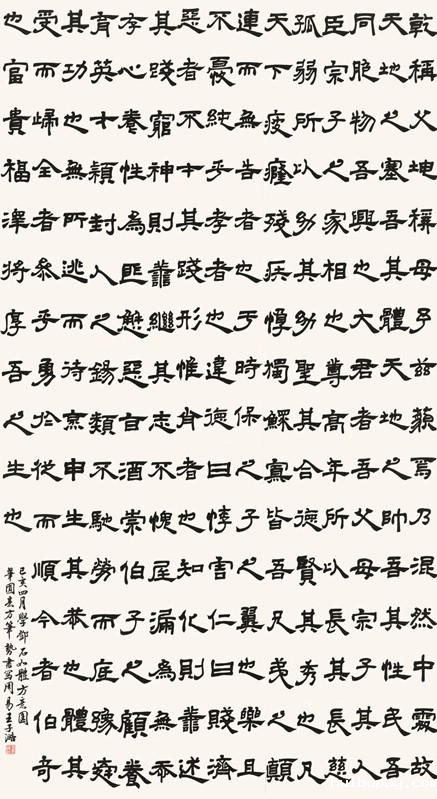 乾稱父坤稱母予茲藐焉乃混然中處故
天地之塞吾其體天地之帥吾其性民吾
同胞物吾與也大君者吾父母宗子其大
臣宗子之家相也尊高年所以長其長慈
孤弱所以幼其幼聖其合德賢其秀也凡
天下疲癃殘疾惸獨鰥寡皆吾兄弟之顛
連而無告者也于時保之子之翼也樂且
不憂純乎孝者也違德曰悖害仁曰賊濟
惡者不才其踐形惟肖者也知化則善述
其踐窮神則善繼其志不愧屋漏為無忝
存心養性為匪懈惡旨酒崇伯子之顧養
育英才穎封人之錫類不弛勞而底豫舜
其功也無所逃而待烹申生其恭也體其
受而歸全者參乎勇於從而順令者伯奇
也富貴福澤將厚吾之生也
己亥四月學鄧石如體方意圓
筆圓意方筆勢書寫周易王子